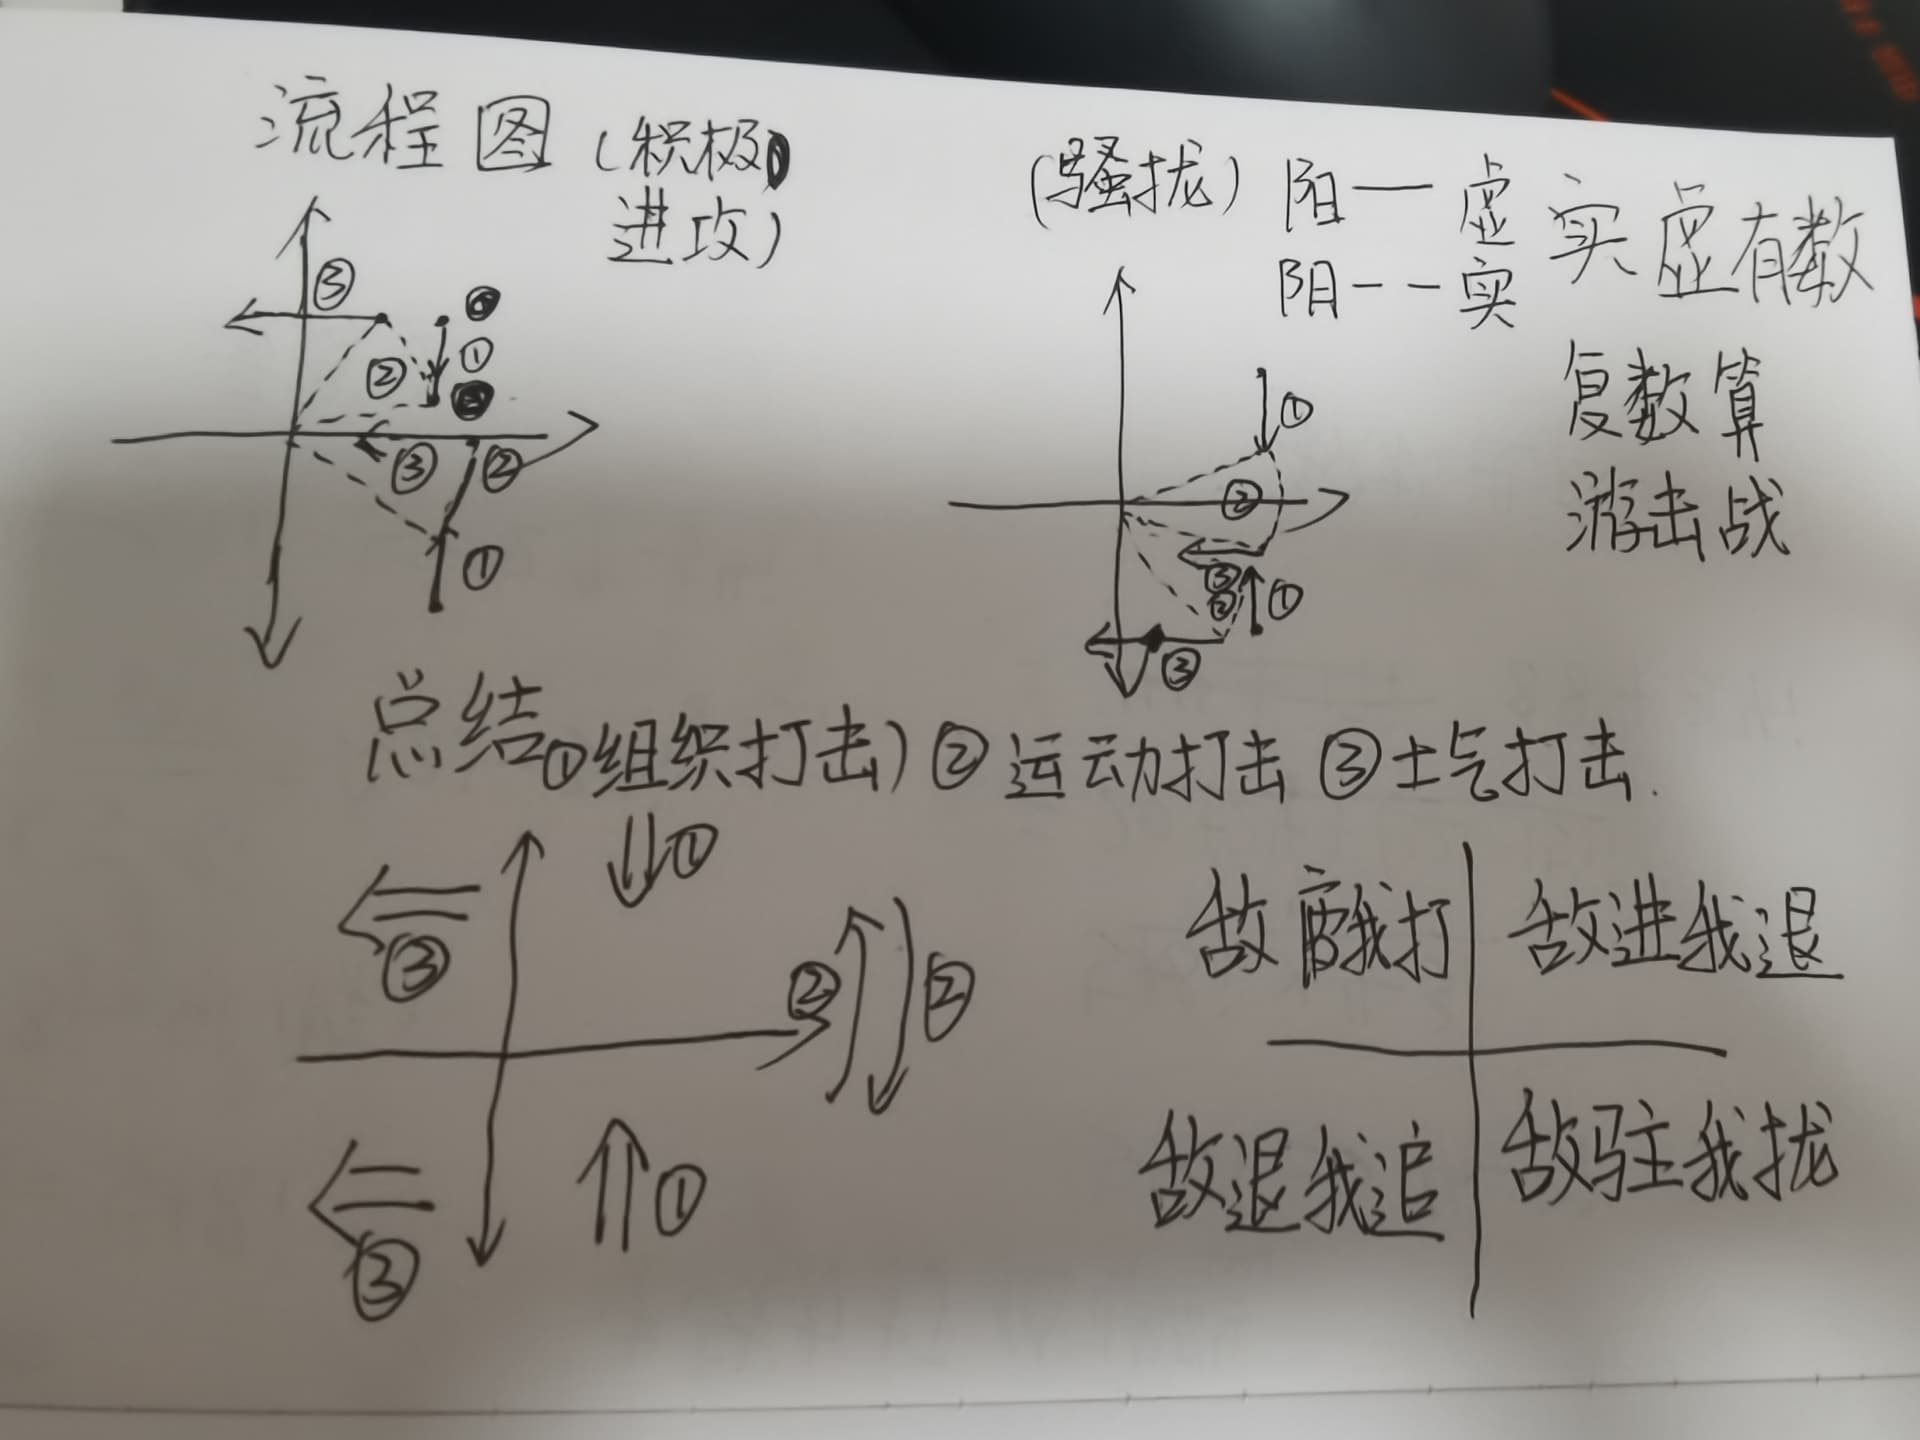 流程图(积极
进攻)
③
①
②
③
②
①
(骚扰)
阳— 虚
阳-- 实
实虚有数
复数算
游击战
①
②
③
②
①
③
总结①组织打击)②运动打击③士气打击.
①
③
②
②
①
③
敌疲我打
敌进我退
敌退我追
敌驻我扰